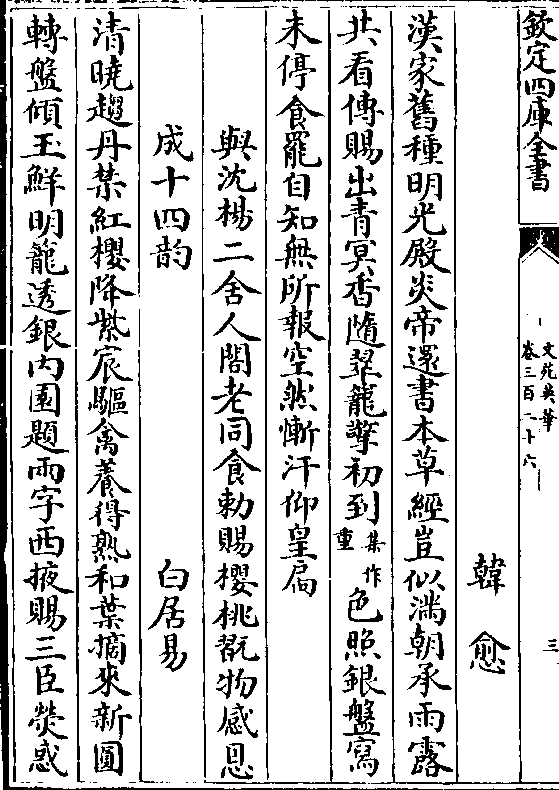 欽定四庫全書
文苑英華
卷三百二十六
三
韓愈
漢家舊種明光殿炎帝還書本草經豈似滿朝承雨露
共看傳賜出青冥香隨翠籠擎初到集作重色照銀盤寫
未停食罷自知無所報空然慚汗仰皇扃
與沈楊二舍人閣老同食勅賜櫻桃翫物感恩
成十四韵
白居易
清曉趨丹禁紅櫻降紫宸驅禽養得熟和葉摘來新圓
轉盤傾玉鮮明籠透銀內園題兩字西掖賜三臣熒惑